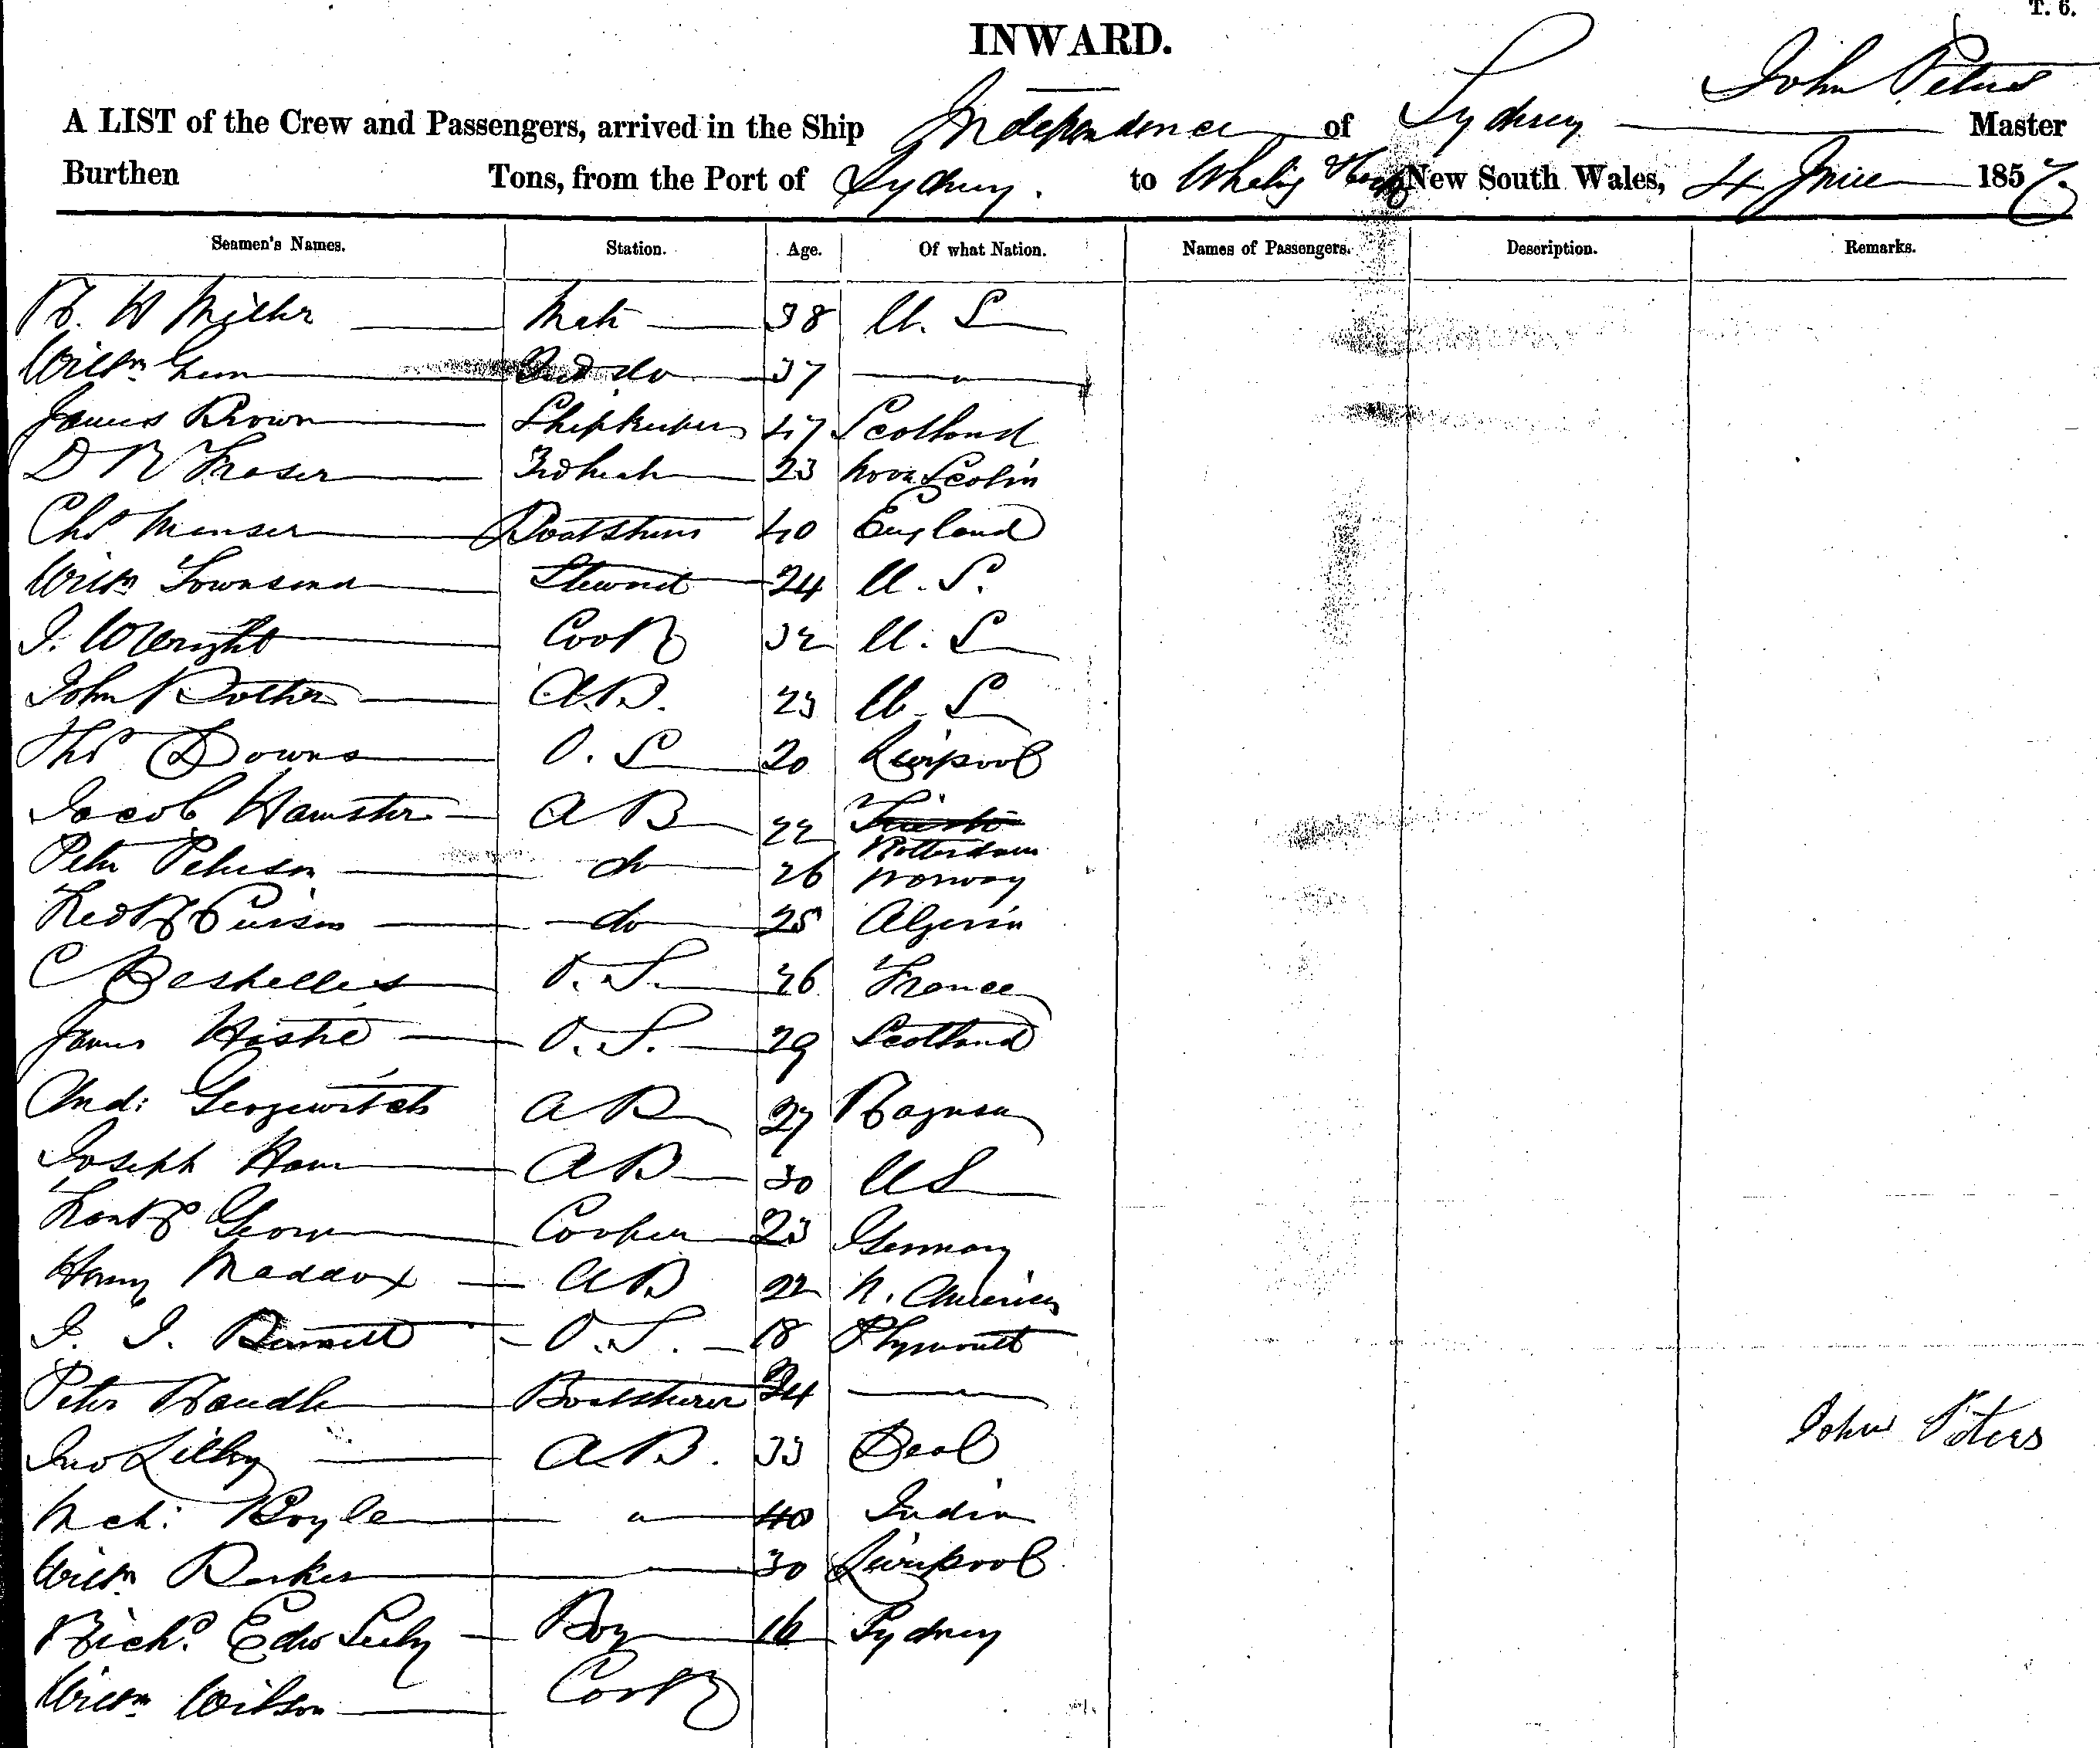 T. 6.
INWARD.
John Peters
A LIST of the Crew and Passengers, arrived in the Ship Independence of Sydney Master
Burthen Tons, from the Port of Sydney. to Whaling New South Wales, 4 June 1857.
Seamen's Names. Station. Age. Of what Nation. Names of Passengers. Description. Remarks.
R. W Miller Mate 38 U. S
Willm Gunn 2nd do 37 "
James Brown Shipkeeper 47 Scotland
D R Fraser 3rd Mate 23 Nova Scotia
Chs Manser Boatsteerer 40 England
Willm Townsend Steward 24 U. S.
J. W Wright Cook 32 U. S
John A.B. 23 U. S
Thos Downs O. S 20 Liverpool
Jacob Hamster A B 22 Trieste
Rotterdam
Peter Peterson do 26 Norway
Fredk do 25 Algeria
C O. S. 26 France
James Hastie O. S. 29 Scotland
And: Georgewitch A B 27 Ragusa
Joseph Ham A B 30 U S
Frank George Cooper 23 Germany
Henry Maddox A B 22 N. America
J. J. Bennett O. S. 18 Plymouth
Peter Randle Boatsteerer 24
Jno Lilley A B. 33 Deal
John Peters
Mch: Boyle " 40 India
Willm Barker 30 Liverpool
Richd Edw Seely Boy 16 Sydney
Willm Wilson Cook